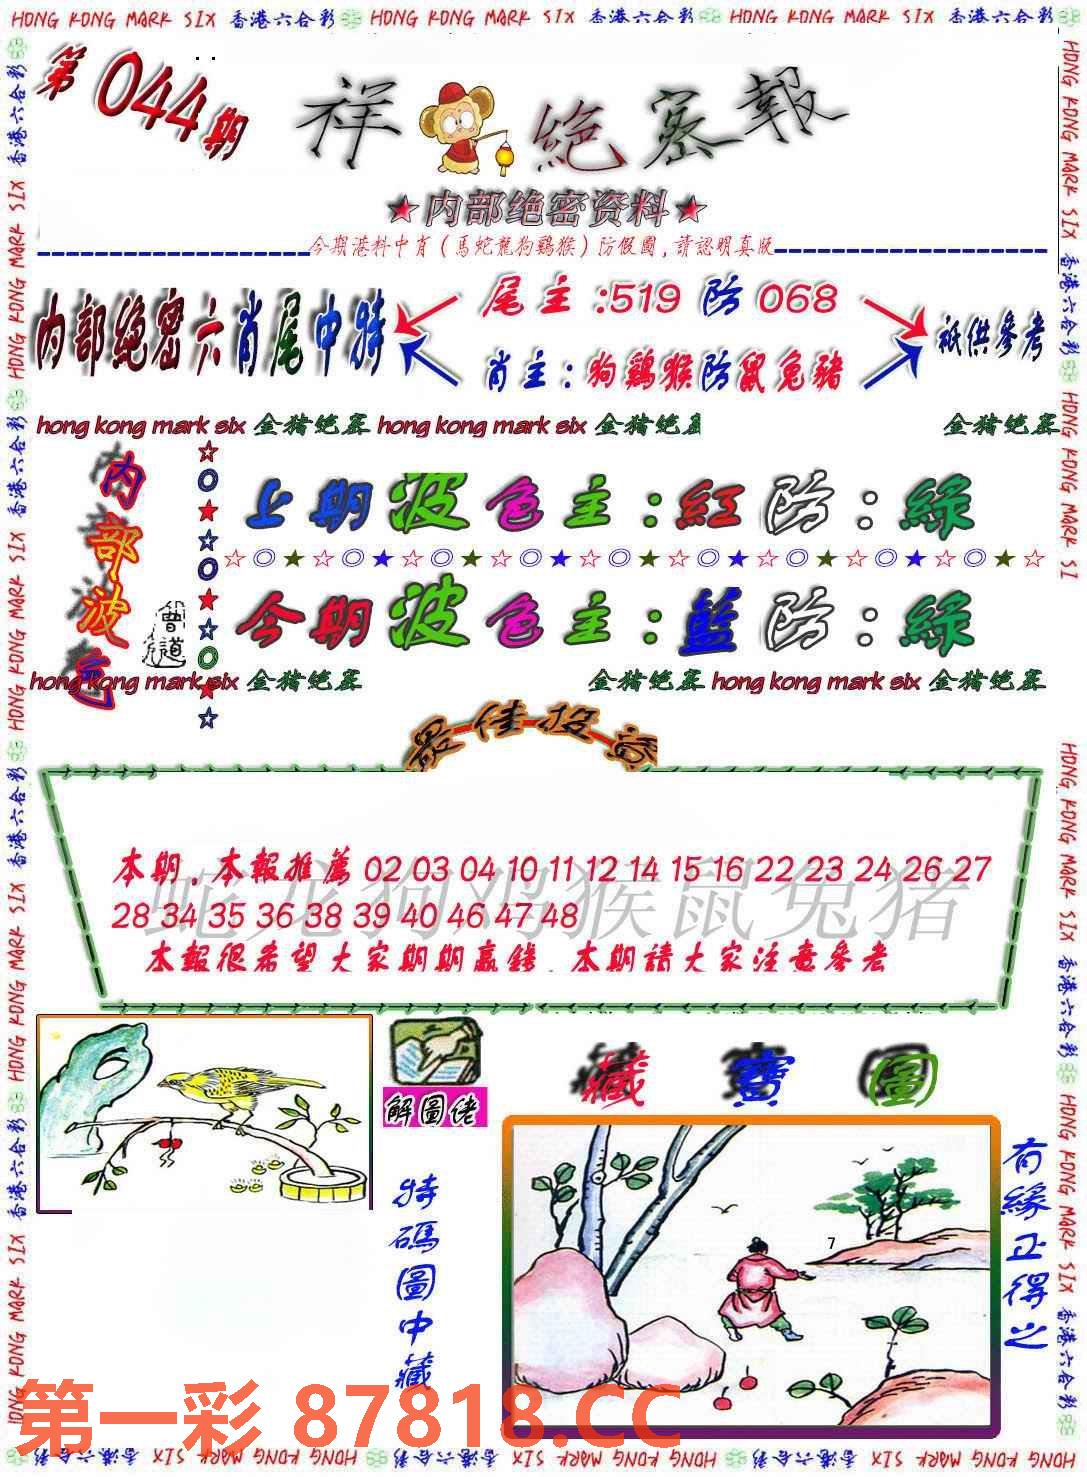 HONG KONG MARK SIX 香港六合彩 HONG KONG MARK SIX 香港六合彩 HONG KONG MARK SIX 香港六合彩
第044期
祥 絕密報
★内部绝密资料★
今期港料中肖（馬蛇龍狗鷄猴）防假圖,請認明真版
内部绝密六肖尾中特
尾主:519防068
肖主:狗鷄猴防鼠兔豬
祇供參考
hong kong mark six 金猪绝密 hong kong mark six 金猪绝密
金猪绝密
内部波色
曾道
上期波色主:紅防:綠
☆◎★☆◎★☆◎★☆◎★☆◎★☆◎★☆◎★☆◎★☆◎★☆
今期波色主:藍防:綠
hong kong mark six 金猪绝密
金猪绝密 hong kong mark six 金猪绝密
最佳投资
蛇龙狗鸡猴鼠兔猪
本期,本報推薦 02 03 04 10 11 12 14 15 16 22 23 24 26 27
28 34 35 36 38 39 40 46 47 48
本報很希望大家期期贏錢,本期請大家注意參考
解圖佬
特碼圖中藏
藏寶圖
7
有緣正得之
第一彩 87818.CC
HONG KONG MARK SIX 香港六合彩 HONG KONG MARK SIX 香港六合彩 HONG KONG MARK SIX 香港六合彩